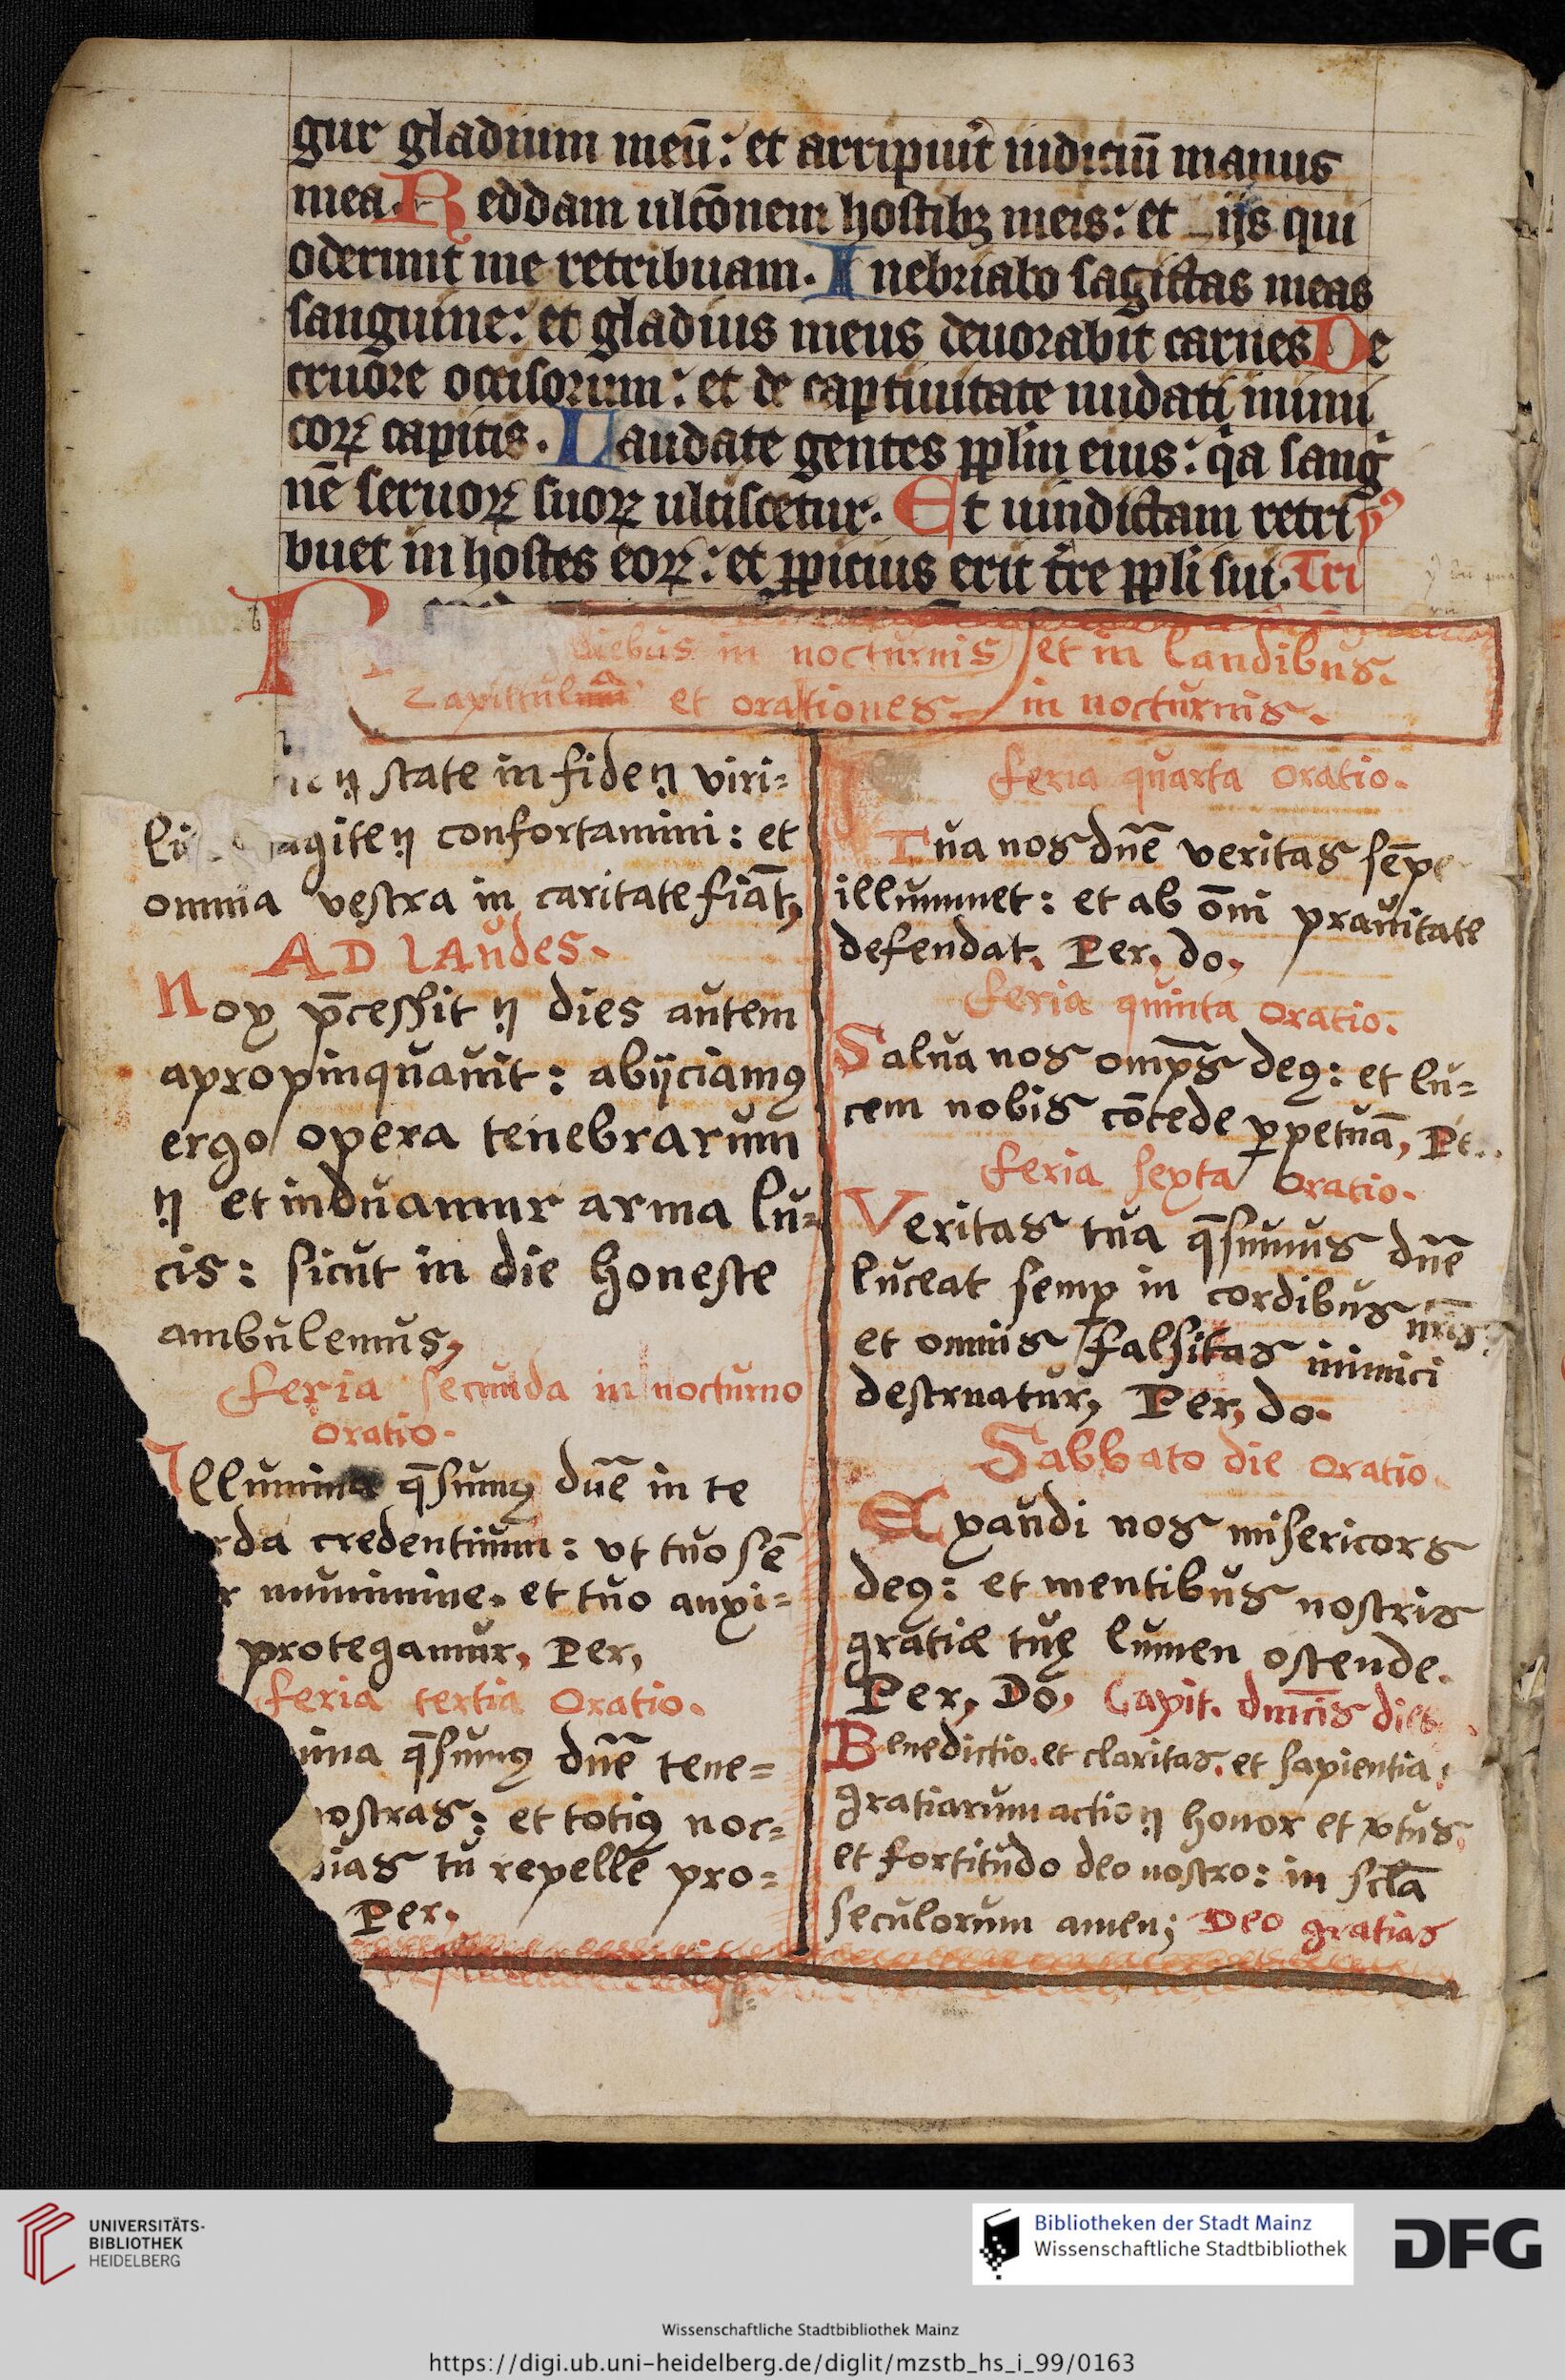 gur gladium meū: et arripiuit iudiciū manus
mea. Reddam ulcōnem hostibꝫ meis: et ijs qui
oderunt me retribuam. Inebriabo sagittas meas
sanguine: et gladius meus deuorabit carnes De
cruore occisorum: et de captiuitate nudati inimi
coꝝ capitis. Laudate gentes pplm eius: qa sang
nē seruoꝝ suoꝝ ulciscetur. Et uindictam retri
buet in hostes eoꝝ: et ppicius erit tre ppli sui. Tri
diebus in nocturnis et in laudibus.
Capittulum et orationes in nocturnis.
state in fide viri=
agite confortamini: et
omnia vestra in caritate fiāt,
AD lAudes.
Nox p̄cessit dies autem
apropinquauit: abijciamꝰ
ergo opera tenebrarum
et induamur arma lu=
cis: sicut in die honeste
ambulemus,
feria secunda in nocturno
oratio.
Illumina q̄sumꝰ dn̄e in te
rda credentium: vt tuo sē
r munimine. et tuo auxi=
protegamur, Per,
feria tertia Oratio.
mina q̄sumꝰ dn̄e tene=
nostras: et totiꝰ noc=
dias tu repelle pro=
Per.
feria quarta oratio.
Tua nos dn̄e veritas sēpe
illuminet: et ab ōni prauitate
defendat. Per, do,
feria quinta oratio.
Salua nos omp̄s deꝰ: et lu=
cem nobis cōcede ꝑpetuā, Pe..
feria sexta Oratio.
Veritas tua q̄sumus dn̄e
luceat semꝑ in cordibus nr̄is:
et omnis falsitas inimici
destruatur, Per, do.
Sabbato die oratio.
Exaudi nos misericors
deꝰ: et mentibus nostris
gratiæ tuę lumen ostende.
Per, Dō, Capit. dnīcis dieb
Benedictio. et claritas. et sapientia
gratiarum actio honor et vtus
et fortitudo deo nostro: in sc̄la
seculorum amen; Deo gratias
UNIVERSITÄTS-
BIBLIOTHEK
HEIDELBERG
Bibliotheken der Stadt Mainz
Wissenschaftliche Stadtbibliothek
DFG
Wissenschaftliche Stadtbibliothek Mainz
https://digi.ub.uni-heidelberg.de/diglit/mzstb_hs_i_99/0163